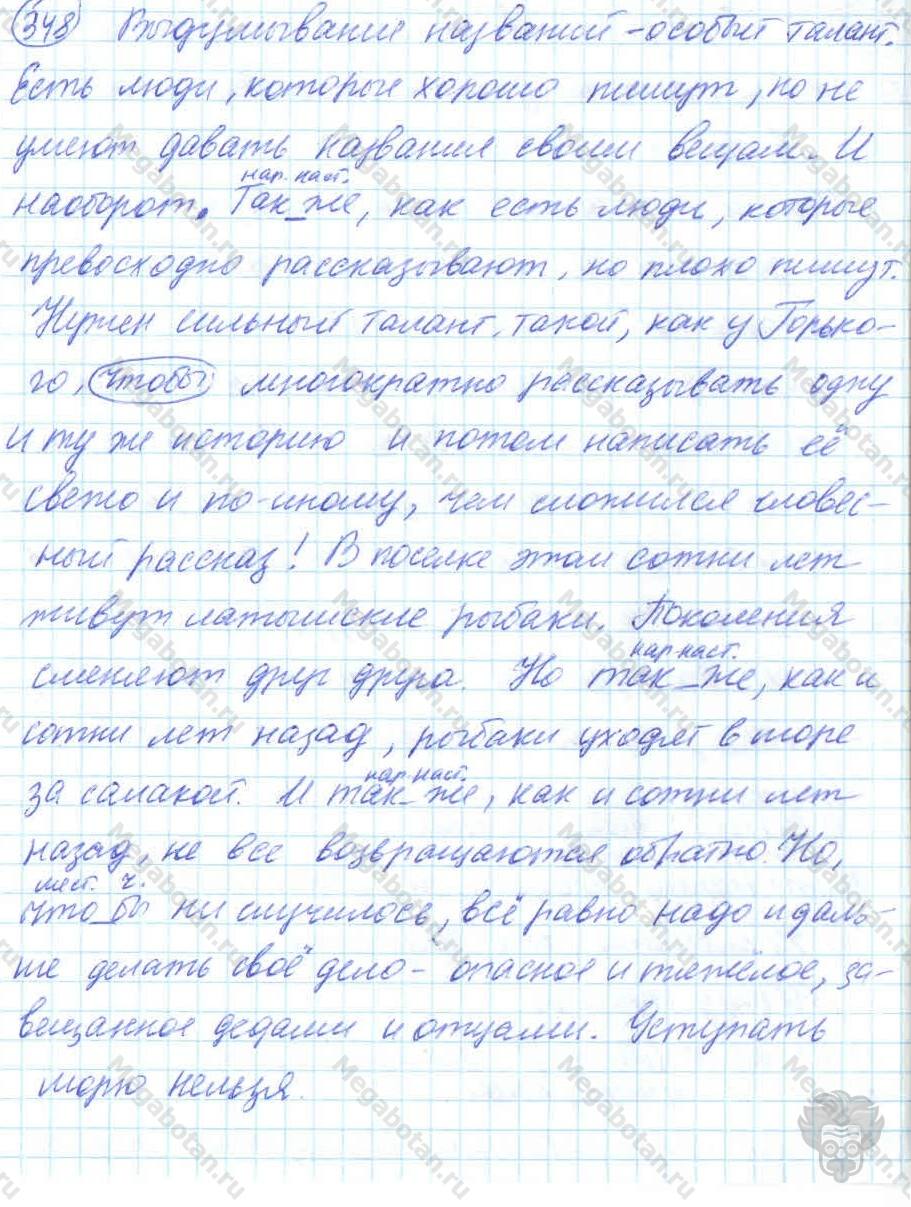 348 Выдумывание названий - особый талант.
Есть люди, которые хорошо пишут, но не
умеют давать названия своим вещам. И
нар. част.
наоборот. Так_же, как есть люди, которые
превосходно рассказывают, но плохо пишут.
Нужен сильный талант, такой, как у Горько-
го, чтобы многократно рассказывать одну
и ту же историю и потом написать её
свежо и по-иному, чем сложился словес-
ный рассказ! В поселке этом сотни лет
живут латышские рыбаки. Поколения
нар. част.
сменяют друг друга. Но так_же, как и
сотни лет назад, рыбаки уходят в море
нар. част.
за салакой. И так_же, как и сотни лет
назад, не все возвращаются обратно. Но,
мест. ч.
что_бы ни случилось, всё равно надо и даль-
ше делать своё дело - опасное и тяжёлое, за-
вещанное дедами и отцами. Уступать
морю нельзя.
Megabotan.ru